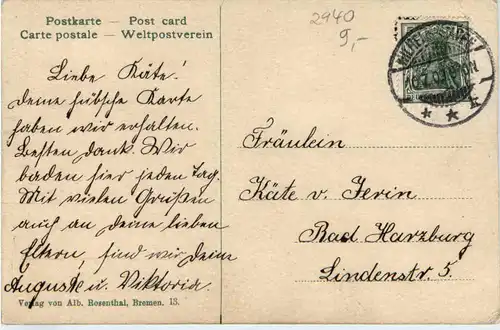 Postkarte — Post card
Carte postale — Weltpostverein
2940
9,-
Liebe Käte!
Deine hübsche Karte
haben wir erhalten.
Besten Dank. Wir
baden hier jeden Tag.
Mit vielen Grüßen
auch an deine lieben
Eltern, sind wir deine
Auguste u. Viktoria.
Verlag von Alb. Rosenthal, Bremen. 13.
Fräulein
Käte v. Jerin
Bad Harzburg
Lindenstr. 5.